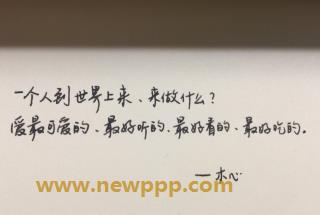 一个人到世界上来、来做什么？
爱最可爱的、最好听的、最好看的、最好吃的。
——木心
www.newppp.com